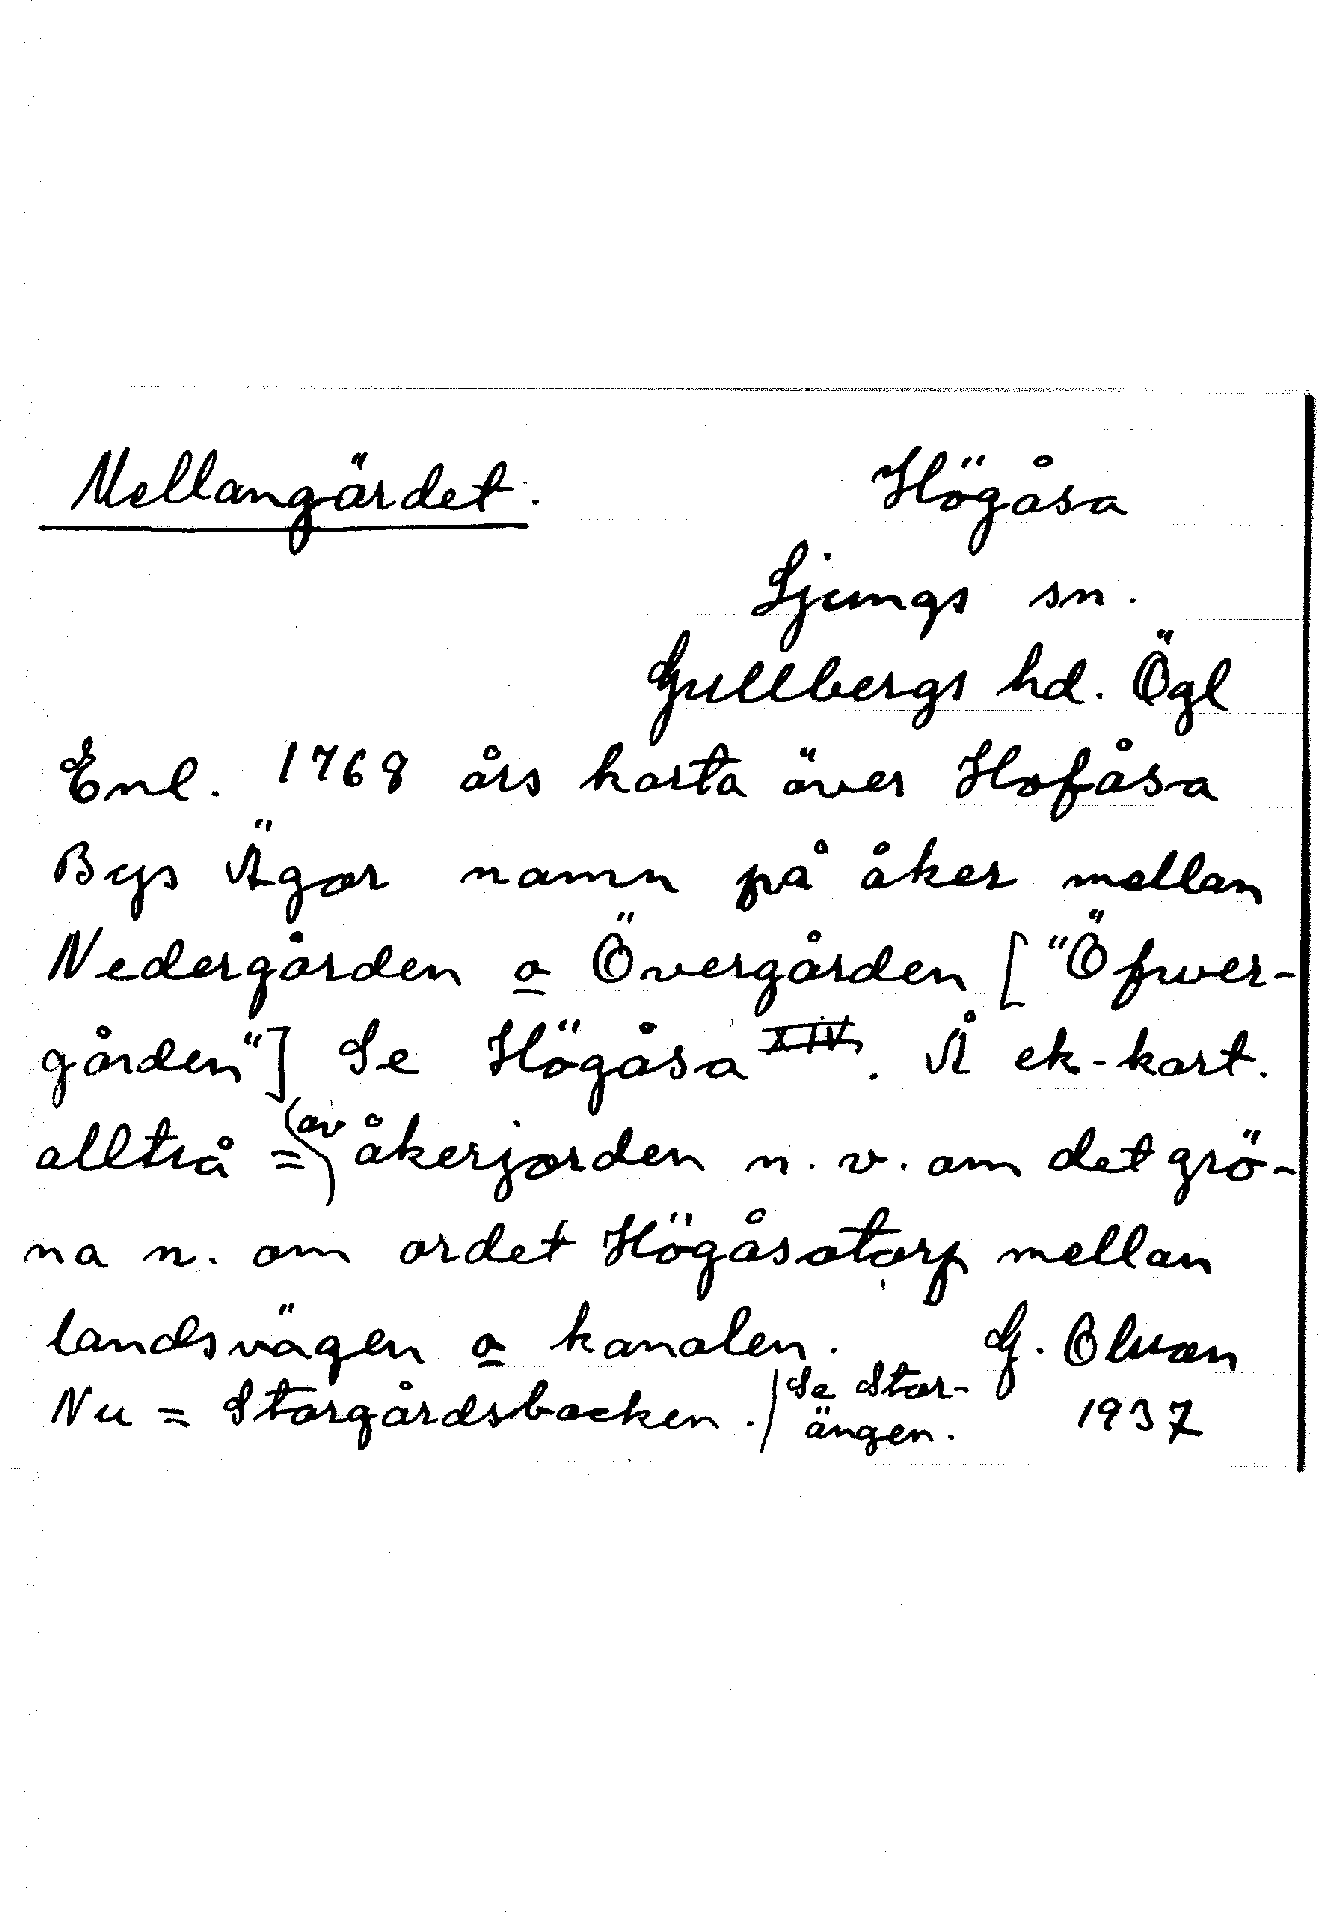 Mellangärdet.
Högåsa
Ljungs sn.
Gullbergs hd. Ögl
Enl. 1768 års karta över Hofåsa
Bys Ägor namn på åker mellan
Nedergården o Övergården ["Öfwer-
gården"] Se Högåsa XIV. Å ek-kart.
alltså = (av) åkerjorden n. v. om det grö-
na n. om ordet Högåsatorp mellan
landsvägen o kanalen. G. Olsson
Nu = Storgårdsbacken. / Se Stor-
ängen.
1937